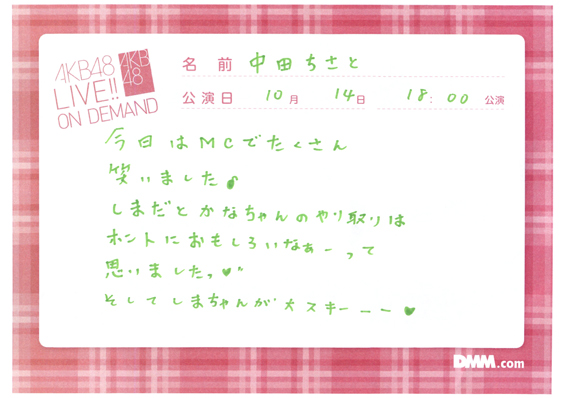 AKB48
LIVE!!
ON DEMAND
AKB
48
名前 中田ちさと
公演日 10月 14日 18:00 公演
今日はMCでたくさん
笑いました♪
しまだとかなちゃんのやり取りは
ホントにおもしろいなぁーって
思いましたっ♥"
そしてしまちゃんが大スキーーー♥
DMM.com